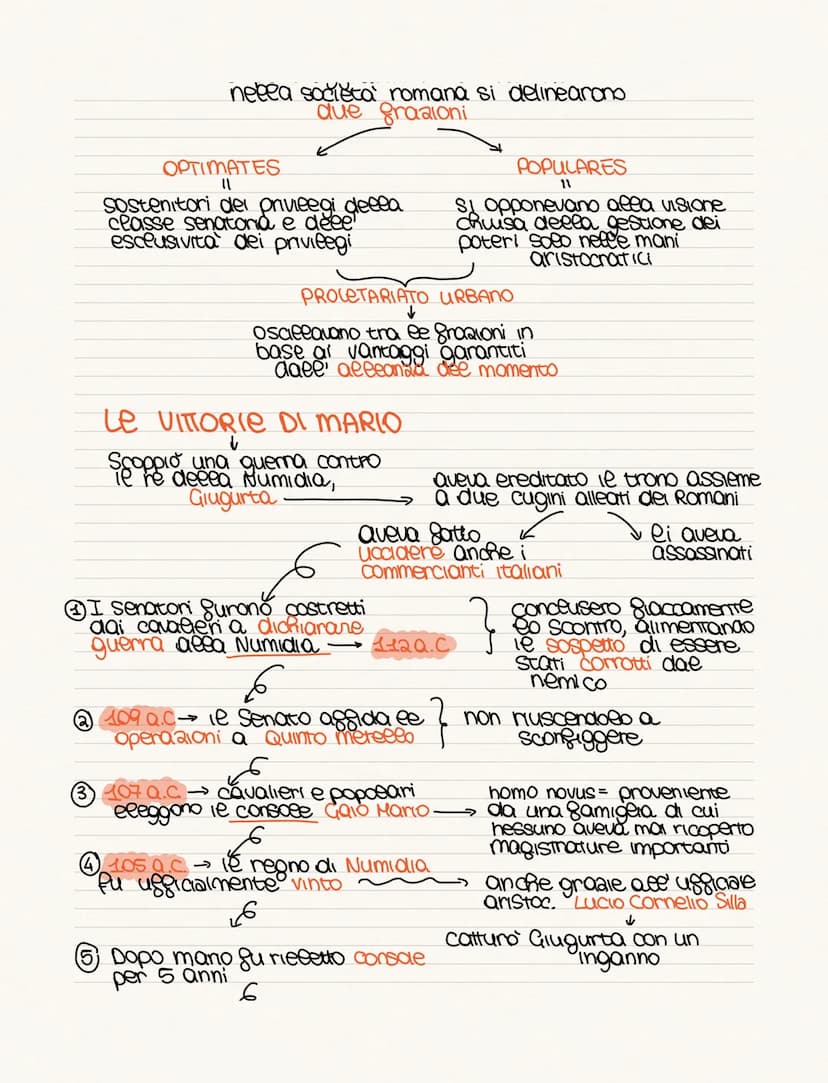 nella società romana si delinearono
due frazioni
OPTIMATES
sostenitori dei privilegi della
classe senatoria e dell'
esclusività dei privilegi
POPULARES
si opponevano alla visione
chiusa della gestione dei
poteri solo nelle mani
aristocratici
PROLETARIATO URBANO
oscillavano tra le frazioni in
base ai vantaggi garantiti
dall' alleanza del momento
LE VITTORIE DI MARIO
Scoppiò una guerra contro
il re della Numidia,
Giugurta
aveva ereditato il trono assieme
a due cugini alleati dei Romani
aveva fatto
uccidere anche i
commercianti italiani
li aveva
assassinati
① I senatori furono costretti
dai cavalieri a dichiarare
guerra alla Numidia → 112 a.C
conclusero fiaccamente
lo scontro, alimentando
il sospetto di essere
stati corrotti dal
nemico
② 109 a.C → il Senato affida le
operazioni a Quinto Metello
non riuscendolo a
sconfiggere
③ 107 a.C → cavalieri e popolari
eleggono il console Gaio Mario →
homo novus = proveniente
da una famiglia di cui
nessuno aveva mai ricoperto
magistrature importanti
④ 105 a.C → il regno di Numidia
fu ufficialmente vinto
anche grazie all' ufficiale
aristoc. Lucio Cornelio Silla
catturò Giugurta con un
inganno
⑤ Dopo mario fu rieletto console
per 5 anni